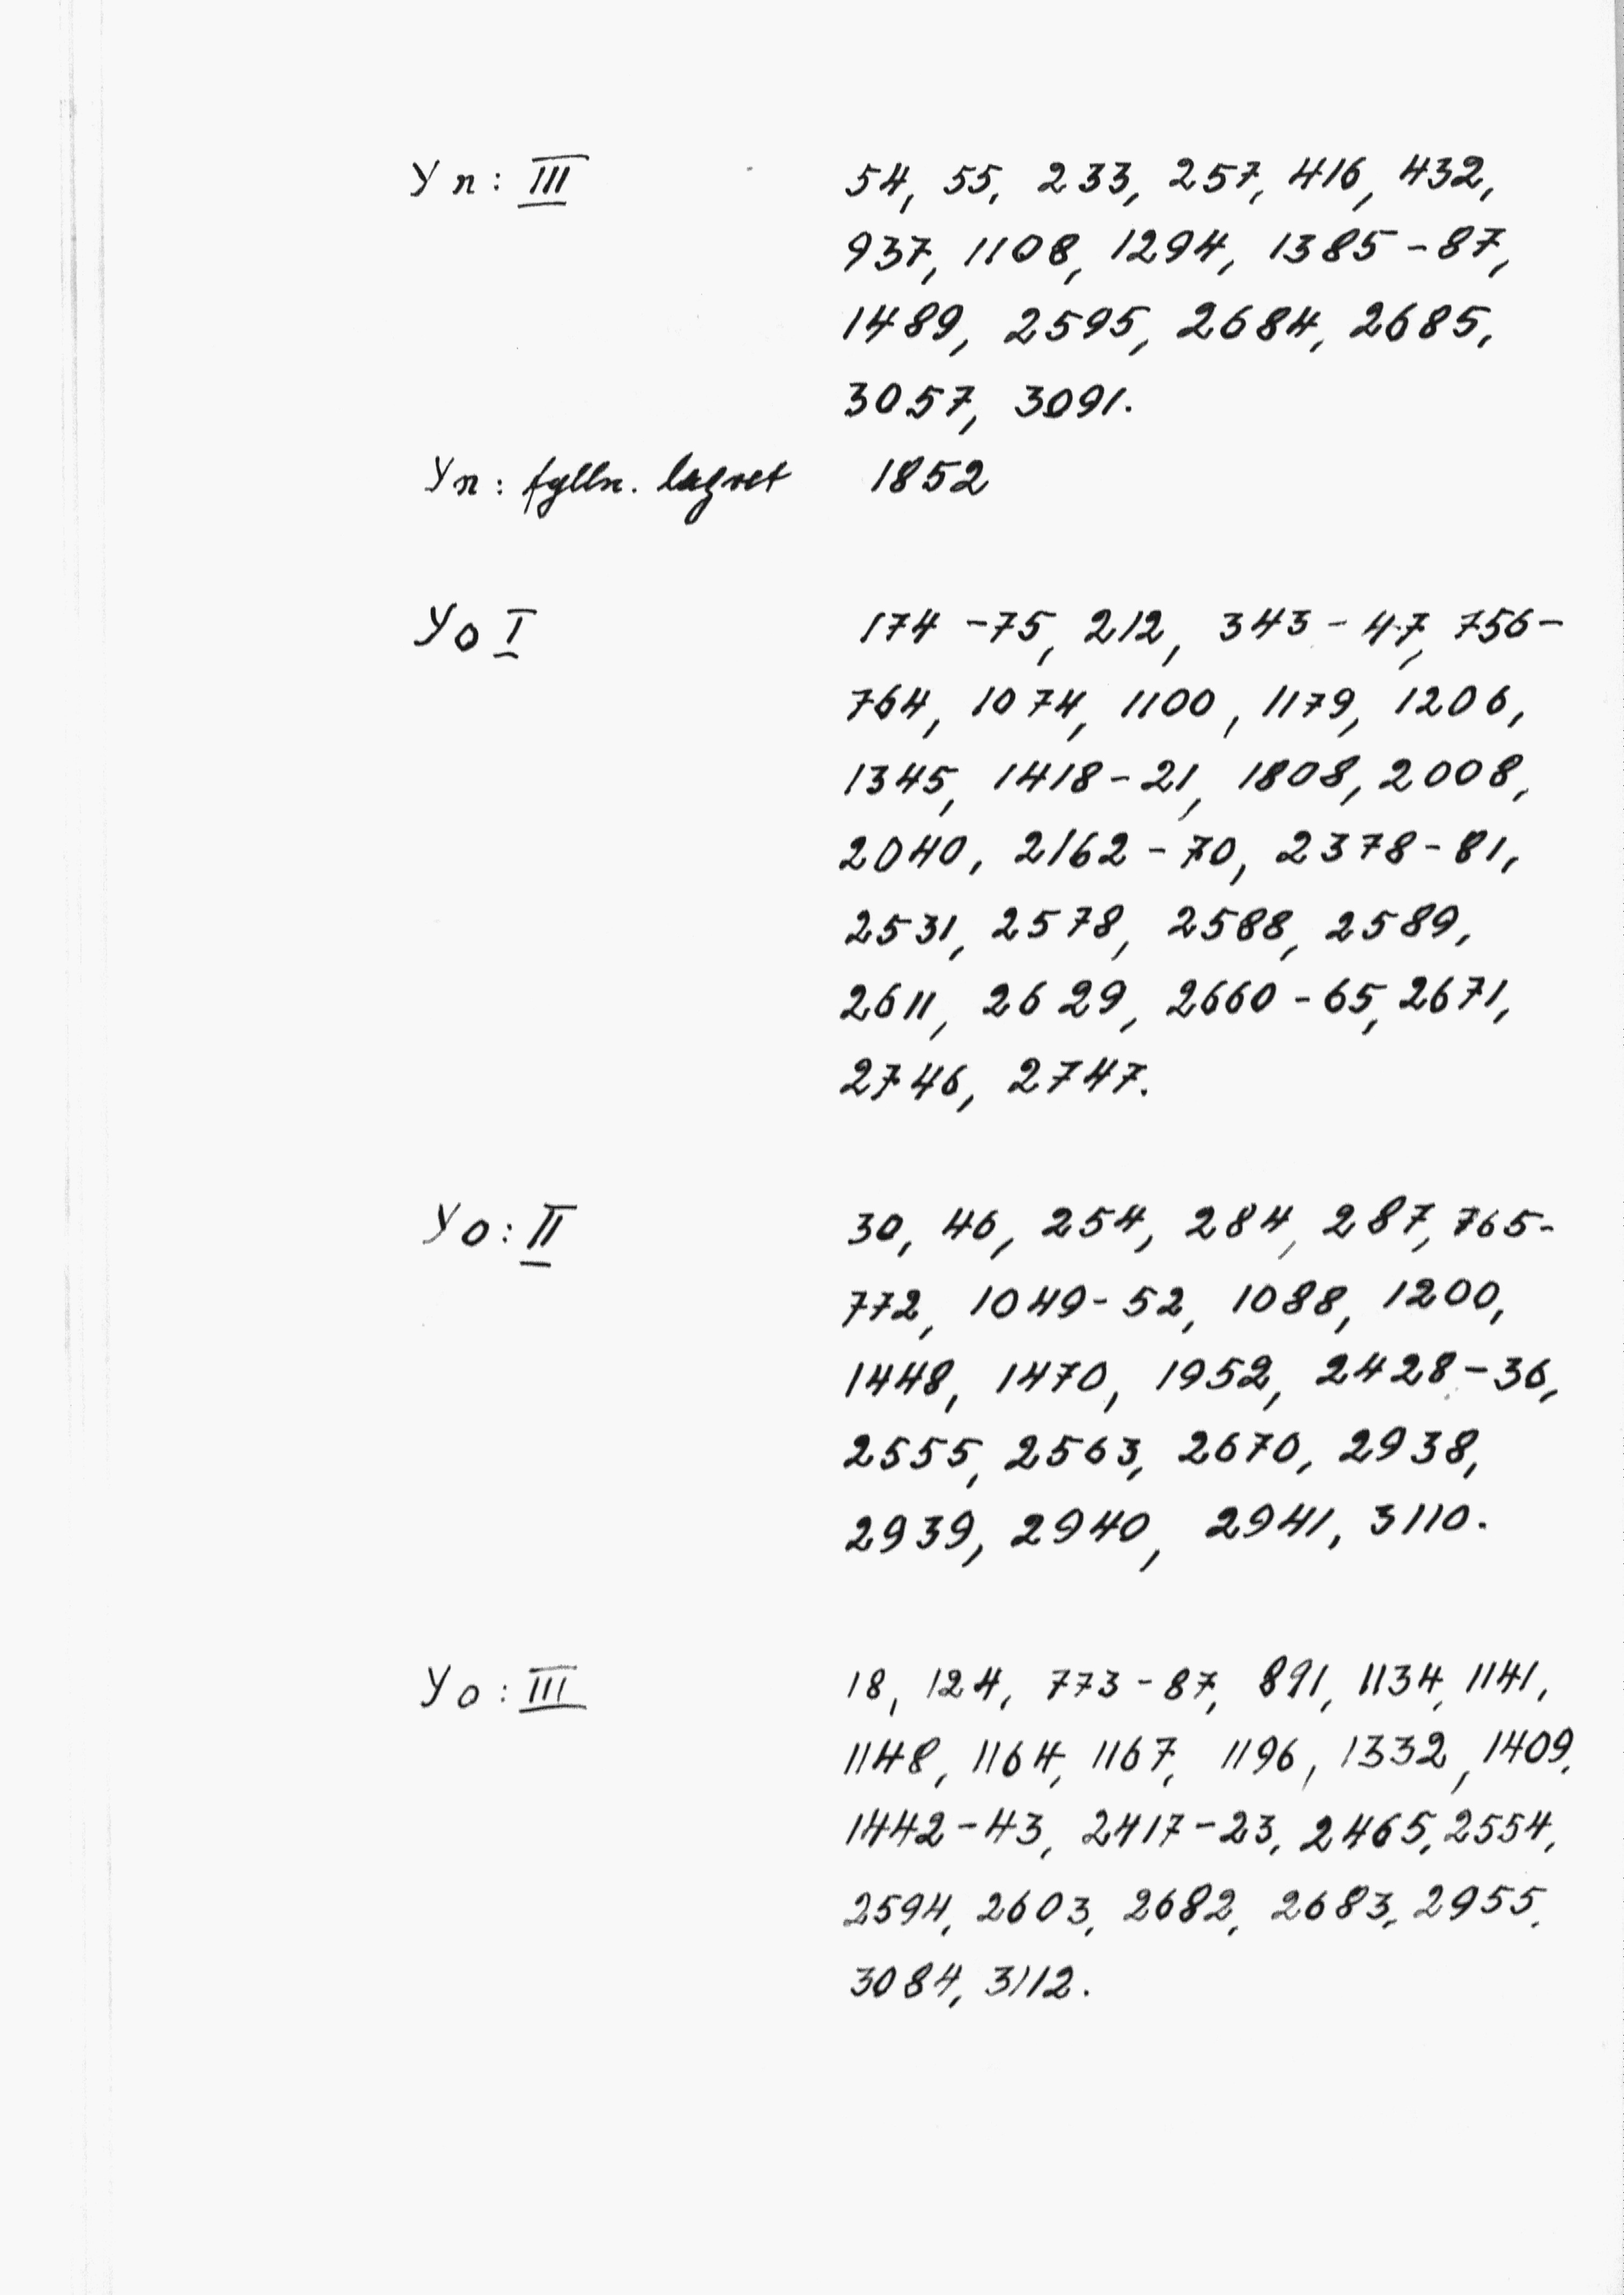 Yn: III 54, 55, 233, 257, 416, 432,
937, 1108, 1294, 1385-87,
1489, 2595, 2684, 2685,
3057, 3091.
Yn: fylln. lagret 1852
Yo I 174-75, 212, 343-47, 756-
764, 1074, 1100, 1179, 1206,
1345, 1418-21, 1808, 2008,
2040, 2162-70, 2378-81,
2531, 2578, 2588, 2589,
2611, 2629, 2660-65, 2671,
2746, 2747.
Yo: II 30, 46, 254, 284, 287, 765-
772, 1049-52, 1088, 1200,
1448, 1470, 1952, 2428-36,
2555, 2563, 2670, 2938,
2939, 2940, 2941, 3110.
Yo: III 18, 124, 773-87, 891, 1134, 1141,
1148, 1164, 1167, 1196, 1332, 1409,
1442-43, 2417-23, 2465, 2554,
2594, 2603, 2682, 2683, 2955,
3084, 3112.